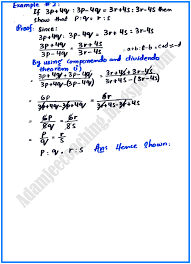 Example # 2:
If 3p+4q : 3p-4q = 3r+4s : 3r-4s then
show that P:q = r:s
Proof: Since:
3p+4q : 3p-4q = 3r+4s : 3r-4s
3p+4q / 3p-4q = 3r+4s / 3r-4s
By using componendo and dividendo
theorem
3p+4q+3p-4q / 3p+4q-(3p-4q) = 3r+4s+3r-4s / 3r+4s-(3r-4s)
6p / 3p+4q-3p+4q = 6r / 3r+4s-3r+4s
6p / 8q = 6r / 8s
p / q = r / s
P : q = r : s Ans Hence Shown.